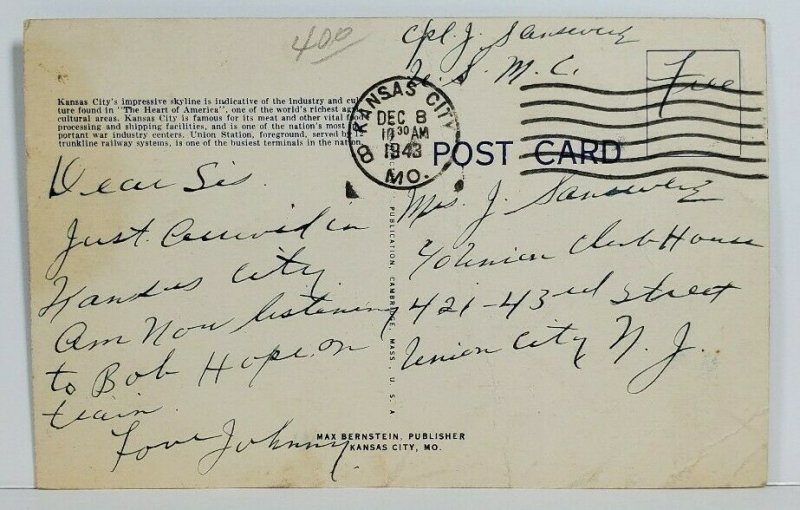 400
Cpl. J. Sanseverz
U. S. M. C.
Free
KANSAS CITY 8
DEC 8
10 30 AM
1943
MO.
Kansas City's impressive skyline is indicative of the industry and cul-
ture found in "The Heart of America", one of the world's richest agri
cultural areas. Kansas City is famous for its meat and other vital food
processing and shipping facilities, and is one of the nation's most im
portant war industry centers. Union Station, foreground, served by 12
trunkline railway systems, is one of the busiest terminals in the nation.
POST CARD
Dear Sis
Just arrived in
Kansas City
Am Now listening
to Bob Hope on
train.
Love Johnny
Mrs. J. Sanseverz
℅ Union Club House
421-43rd Street
Union City N. J.
PUBLICATION, CAMBRIDGE, MASS., U. S. A
MAX BERNSTEIN, PUBLISHER
KANSAS CITY, MO.